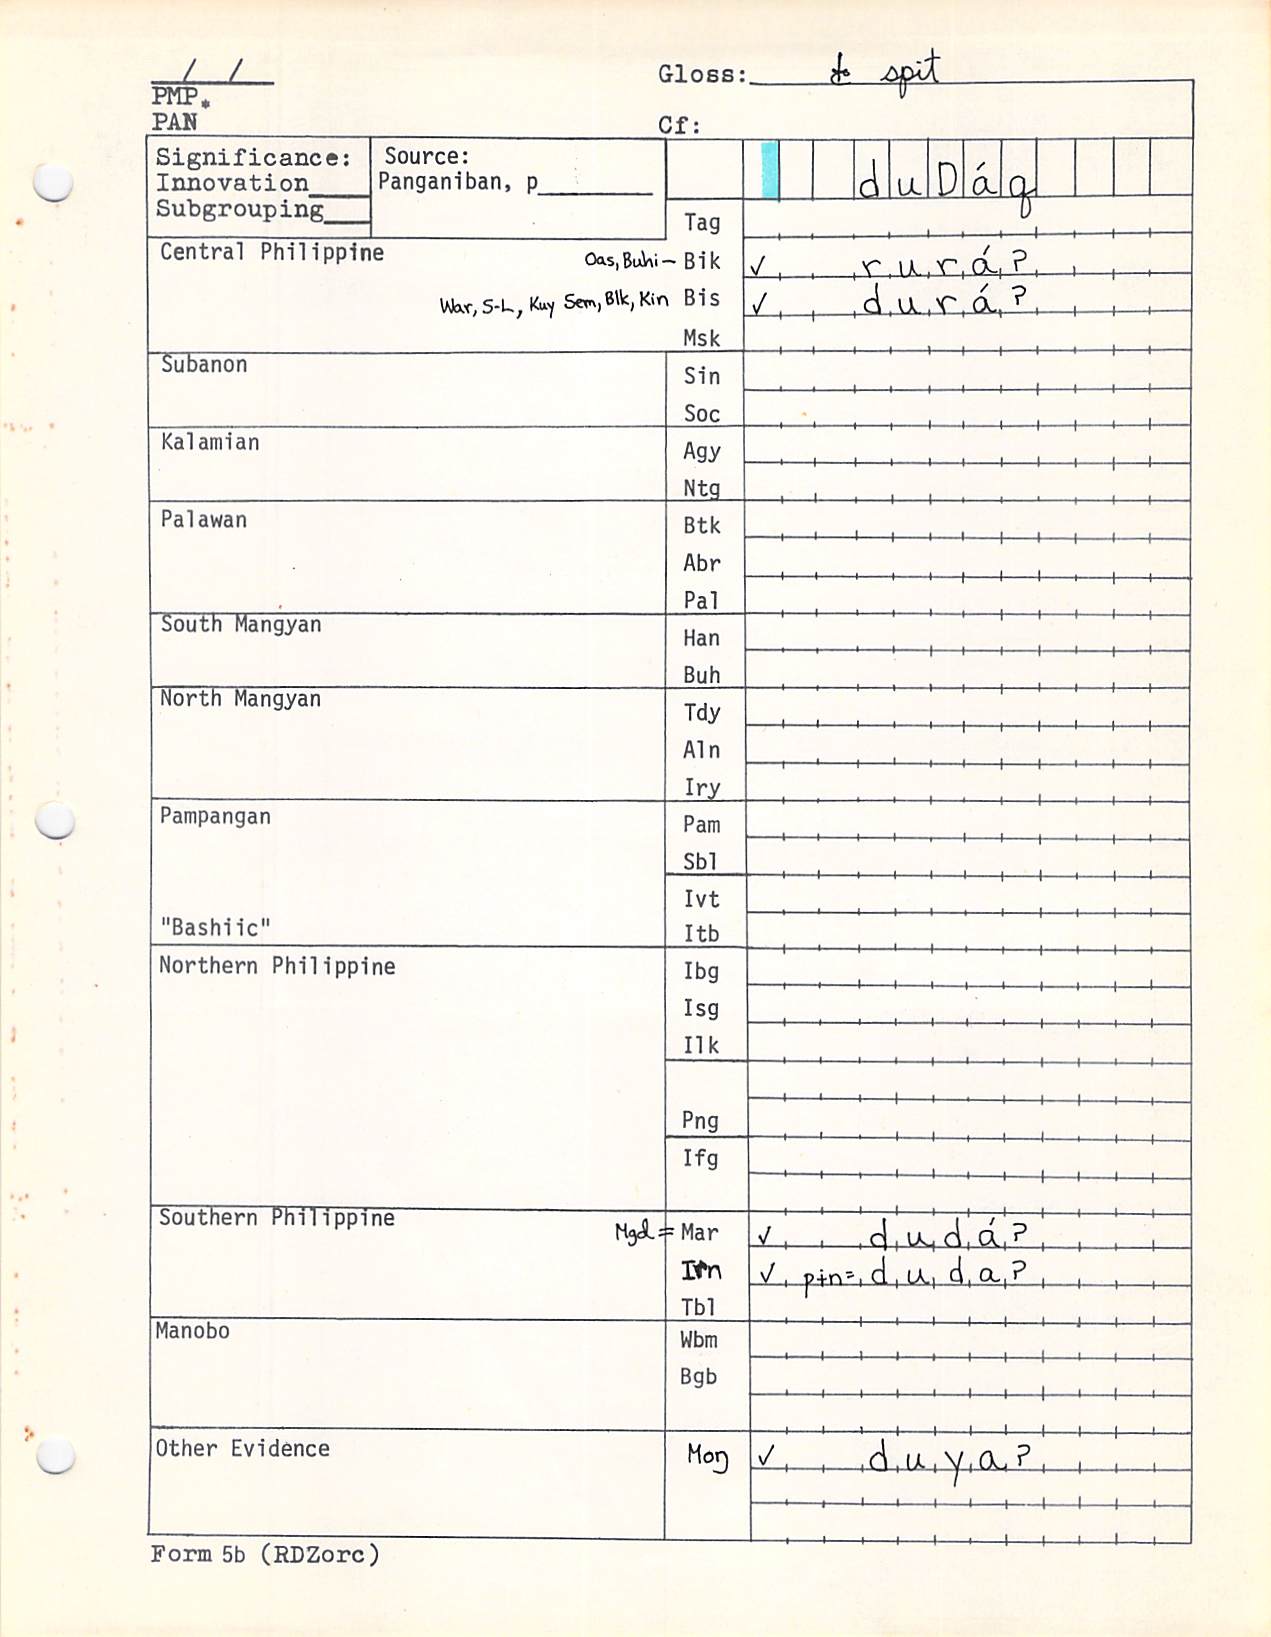 / /
Gloss: to spit
PMP*
PAN
Cf:
Significance:
Innovation____
Subgrouping___
Source:
Panganiban, p________
duDáq
Tag
Central Philippine
Oas, Buhi — Bik ✓ rurá?
War, S-L, Kuy Sem, Blk, Kin Bis ✓ durá?
Msk
Subanon
Sin
Soc
Kalamian
Agy
Ntg
Palawan
Btk
Abr
Pal
South Mangyan
Han
Buh
North Mangyan
Tdy
Aln
Iry
Pampangan
Pam
Sbl
Ivt
"Bashiic"
Itb
Northern Philippine
Ibg
Isg
Ilk
Png
Ifg
Southern Philippine
Mgd = Mar ✓ dudá?
Irn ✓ pɨn=duda?
Tbl
Manobo
Wbm
Bgb
Other Evidence
Moŋ ✓ duya?
Form 5b (RDZorc)